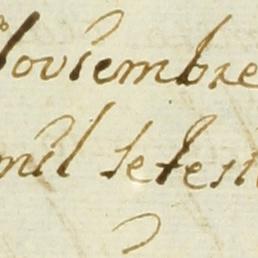 Noviembre
mil sete